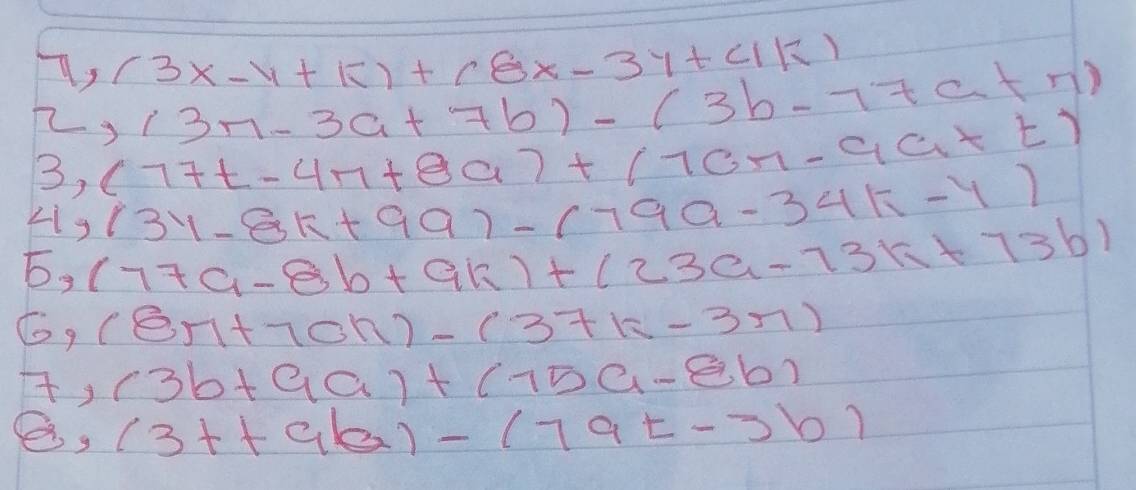 1, (3x-y+k)+(8x-3y+4k)
2, (3n-3a+7b)-(3b-17a+n)
3, (17t-4n+8a)+(10n-9a+t)
4, (3y-8k+9a)-(19a-34k-y)
5, (17a-8b+9k)+(23a-13k+13b)
6, (8n+10k)-(37k-3n)
7, (3b+9a)+(15a-8b)
8, (3t+9b)-(19t-3b)